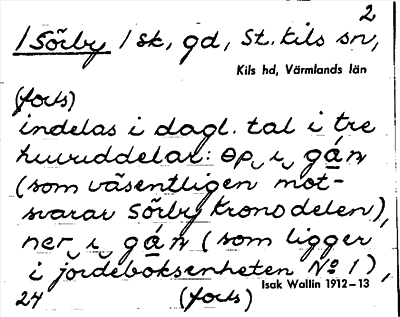 2
/Sörby/ sk, gd, St. Kils sn,
Kils hd, Värmlands län
(forts)
indelas i dagl. tal i tre
huvuddelar: ɵp i gán
(som väsentligen mot-
svarar Sörby Kronodelen),
ner i gán (som ligger
i jordeboksenheten No 1),
Isak Wallin 1912-13
24 (forts)